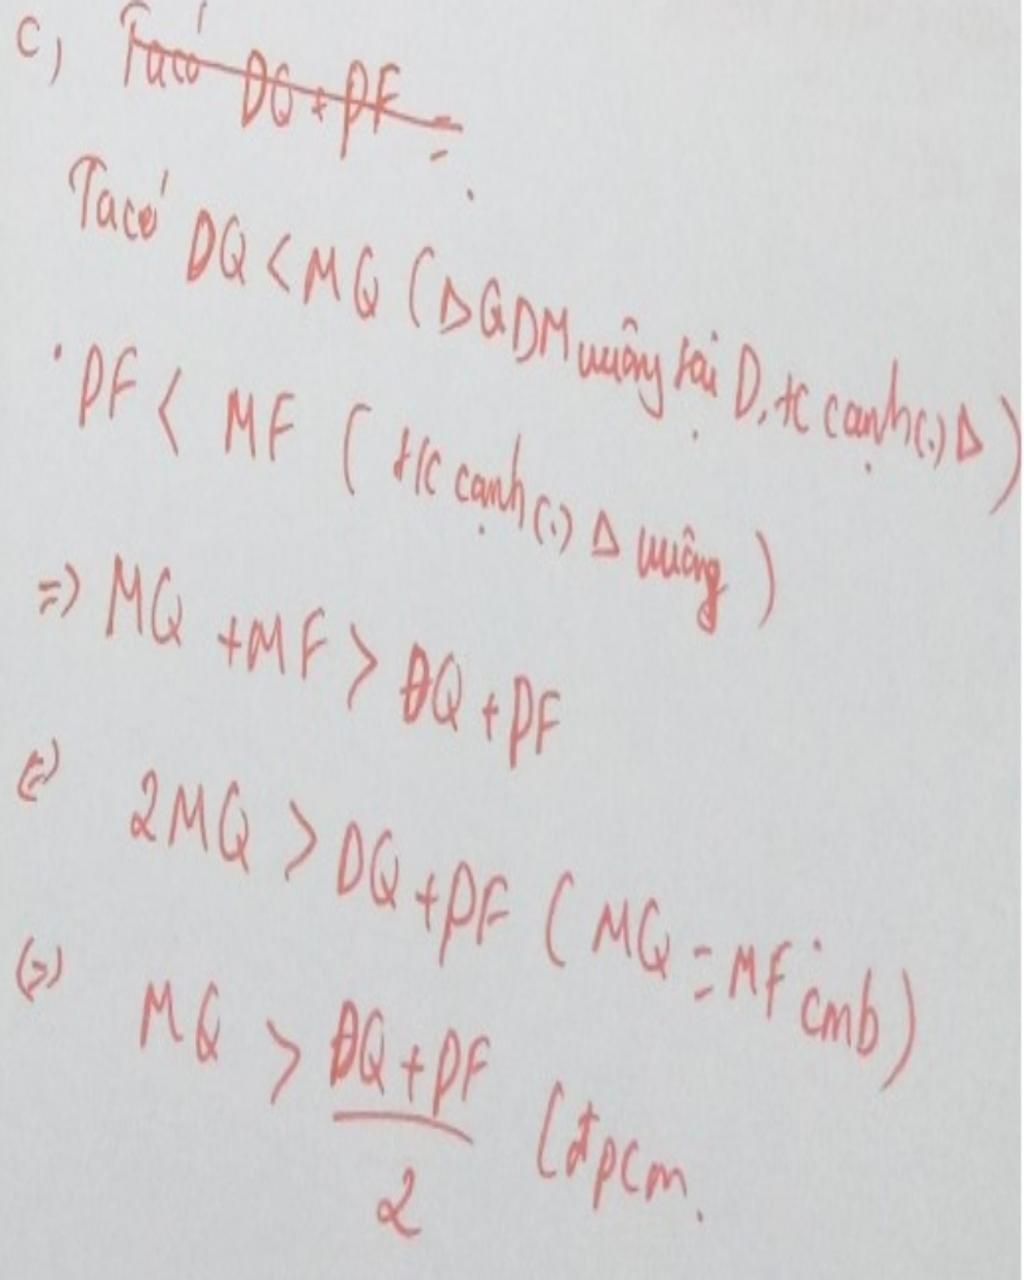 c, Ta có DQ + PF =
Ta có DQ < MQ (Δ QDM vuông tại D, t/c cạnh (.) Δ)
PF < MF ( t/c cạnh (.) Δ vuông )
=> MQ + MF > DQ + PF
<=> 2MQ > DQ + PF ( MQ = MF cmb)
<=> MQ > DQ + PF
2
(đpcm.